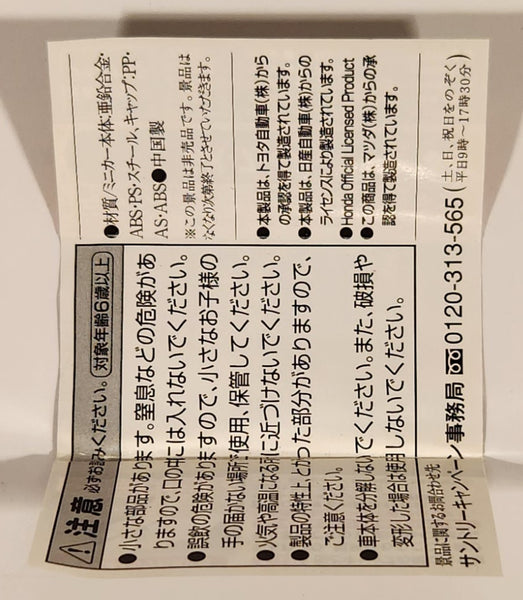 ⚠注意 必ずお読みください。 対象年齢6歳以上
●小さな部品があります。窒息などの危険があ
りますので、口の中には入れないでください。
●誤飲の危険がありますので、小さなお子様の
手の届かない場所で使用、保管してください。
●火気や高温になる所に近づけないでください。
●製品の特性上とがった部分がありますので、
ご注意ください。
●車本体を分解しないでください。また、破損や
変形した場合は使用しないでください。
●材質/ミニカー本体:亜鉛合金・
ABS・PS・スチール、キャップ:PP・
AS・ABS●中国製
※この景品は非売品です。景品は
なくなり次第終了とさせていただきます。
●本製品は、トヨタ自動車(株)から
の承認を得て製造されています。
●本製品は、日産自動車(株)からの
ライセンスにより製造されています。
●Honda Official Licensed Product
●この商品は、マツダ(株)からの承
認を得て製造されています。
景品に関するお問合わせ先
サントリーキャンペーン事務局 0120-313-565 (土、日、祝日をのぞく
平日9時〜17時30分)